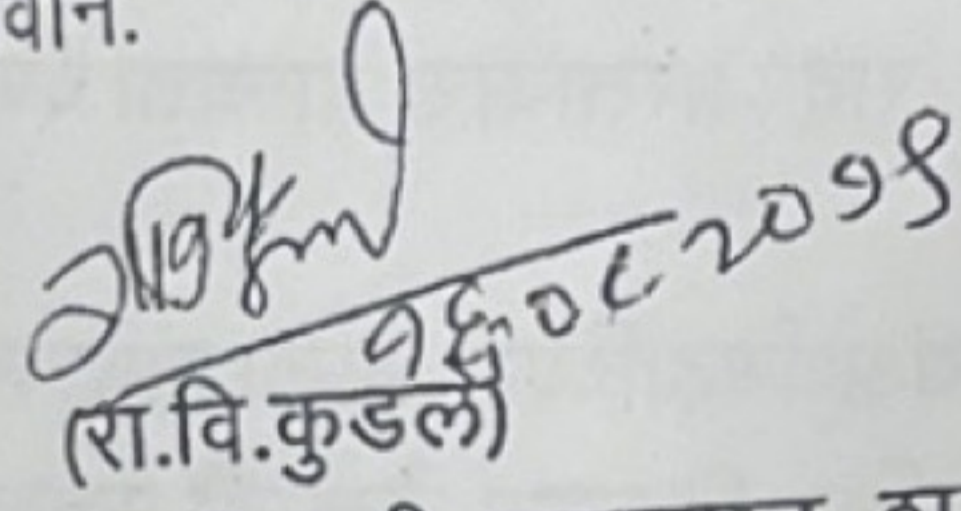 वान.
१६.०८.२०१९
(रा.वि.कुडले)